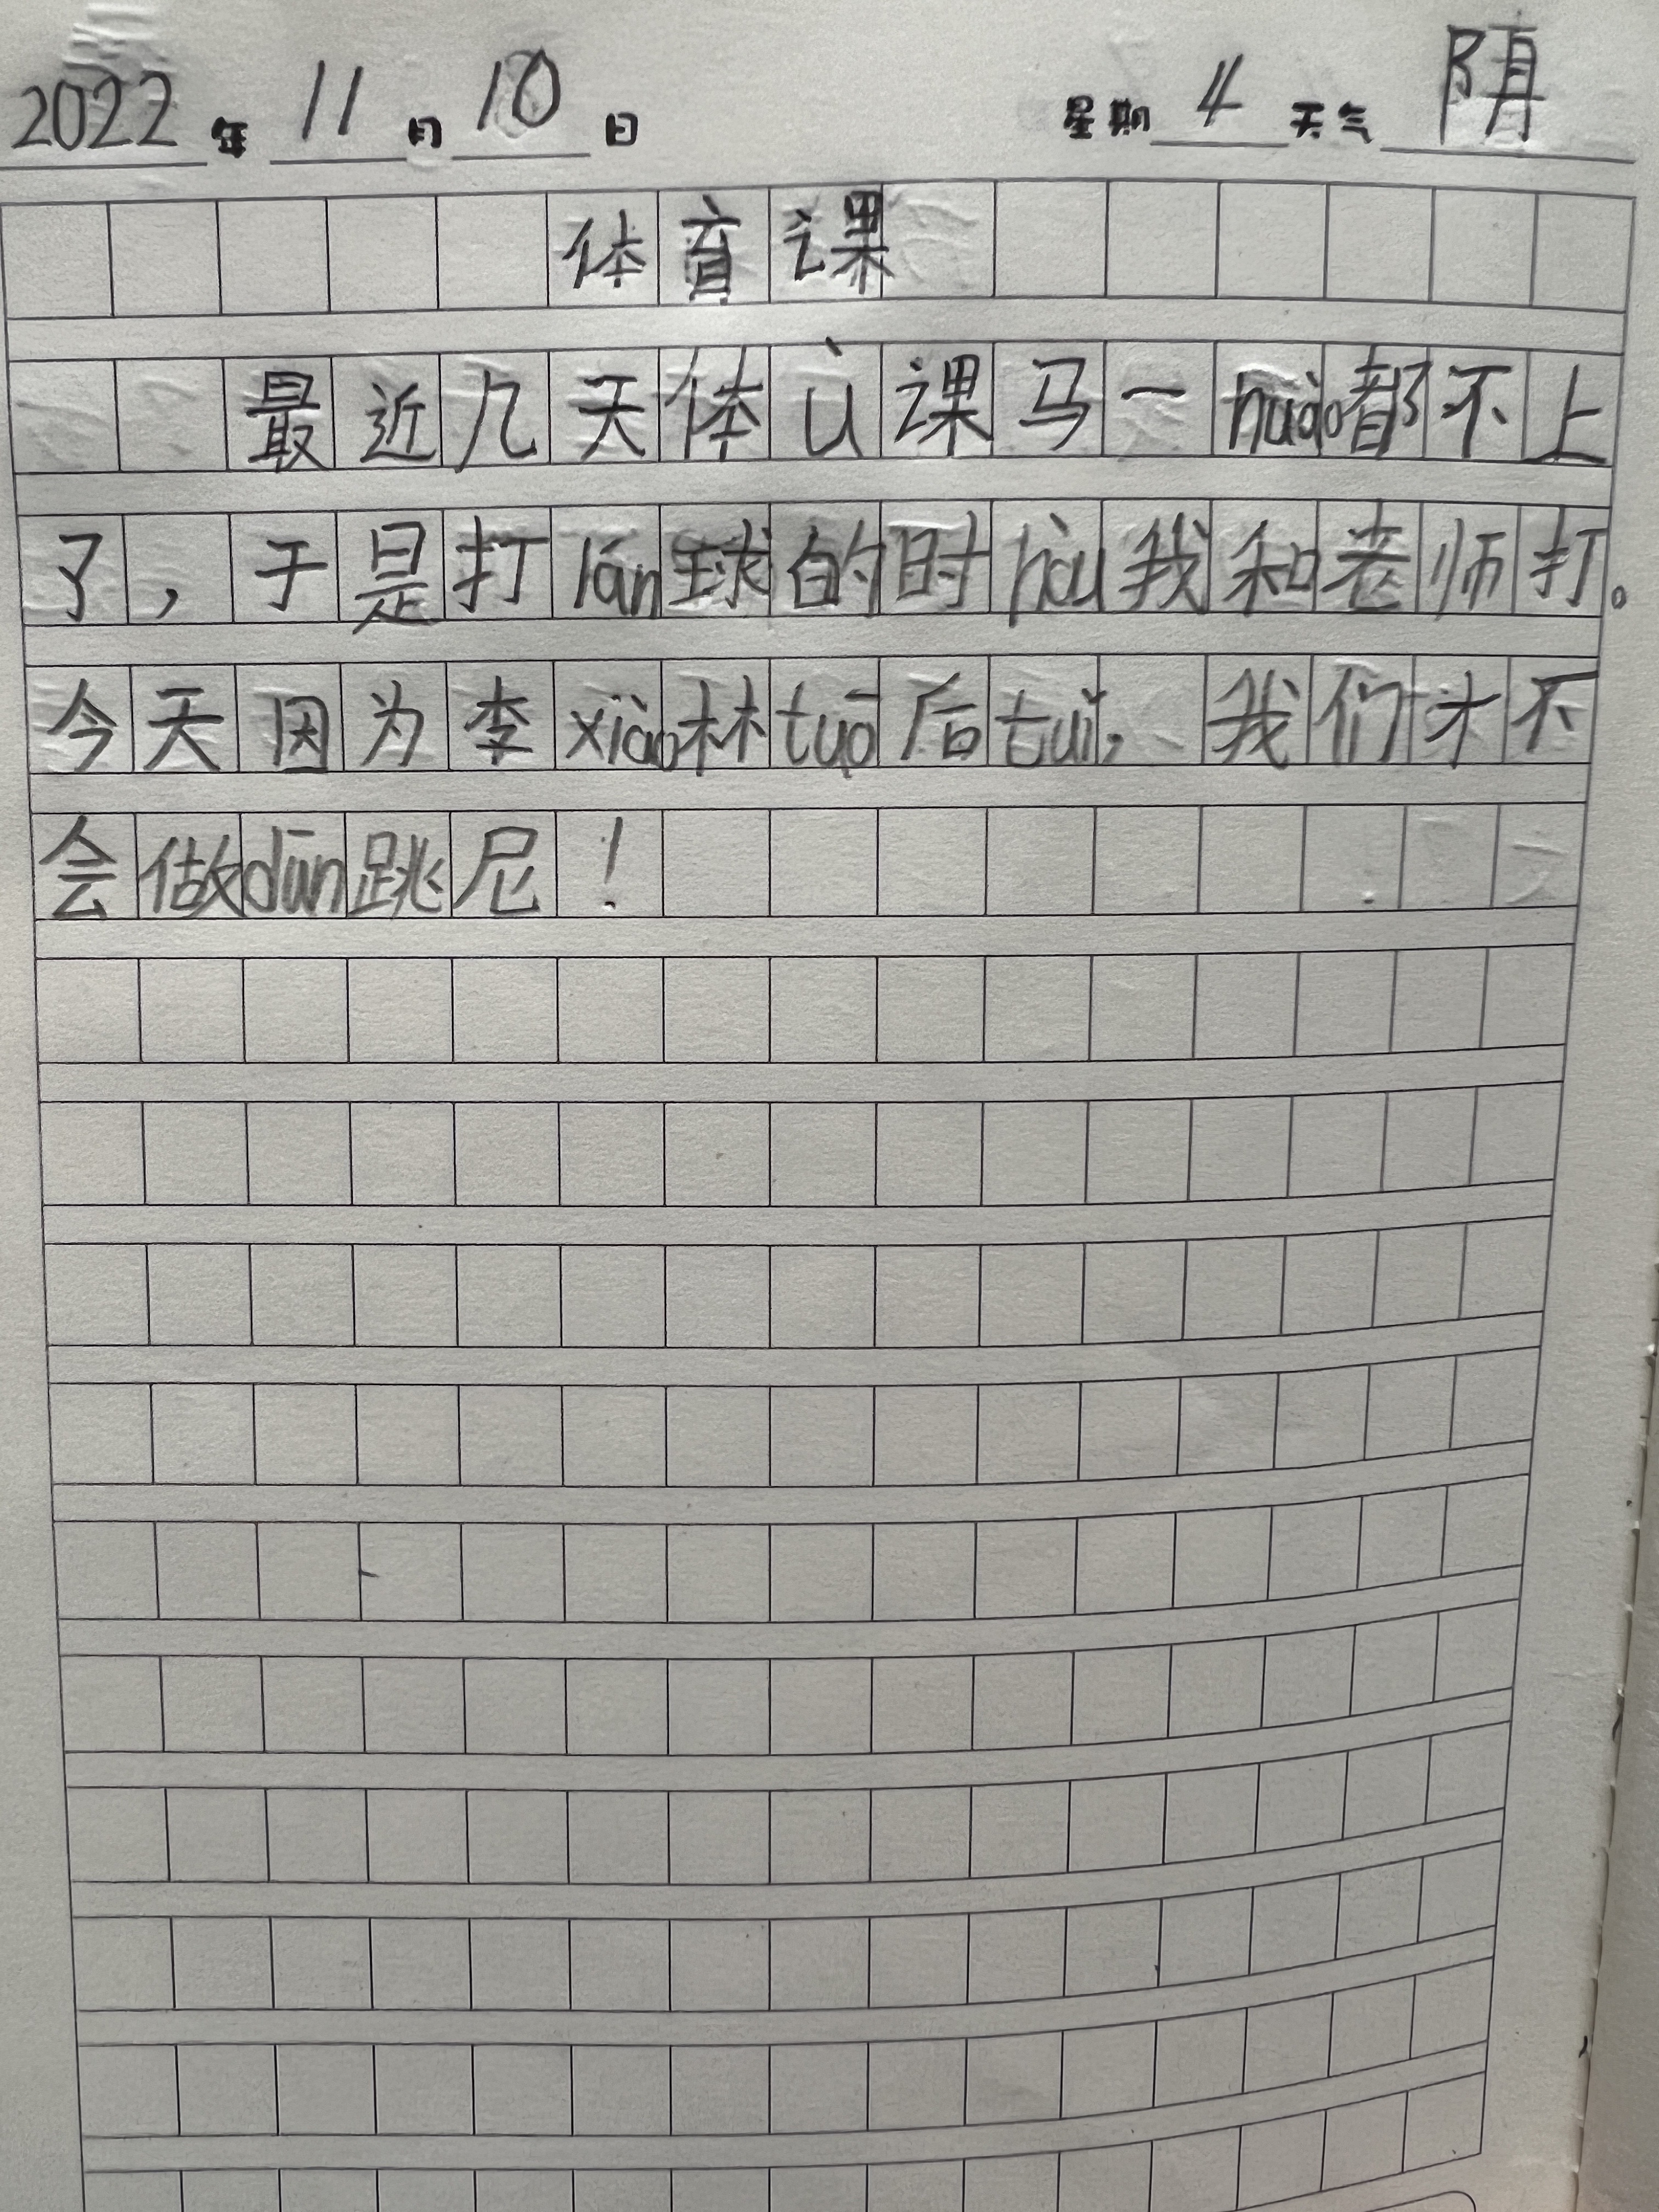 2022年11月10日 星期4天气阴
体育课
最近几天体ù课马一huào都不上
了，于是打lán球的时hòu我和老师打。
今天因为李xiào林tuō后tuǐ，我们才不
会做dūn跳尼！